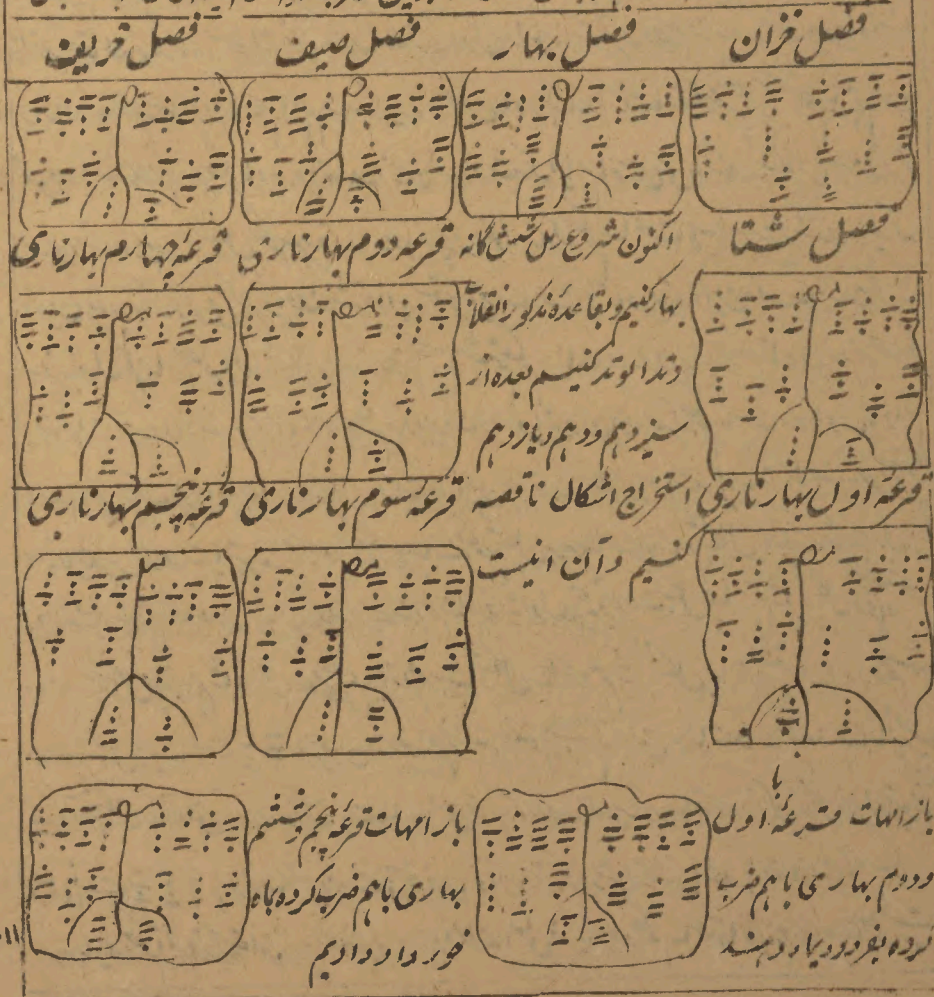 فصل خزان
فصل بهار
فصل صیف
فصل خریف
فصل شتا
اکنون شروع رمل شش گانه
بهار کنیم و بقاعدهٔ مذکور انقلاب
وتد الوتد کنیم بعده از
سیزدهم ودهم ویازدهم
استخراج اشکال ناقصه
کنیم وآن اینست
قرعه دوم بهار ناری
قرعهٔ چهارم بهار ناری
قرعهٔ اول بهار ناری
قرعهٔ سوم بهار ناری
قرعهٔ پنجم بهار ناری
باز امهات قرعهٔ اول
ودوم بهاری با هم ضرب
کرده
باز امهات قرعهٔ پنجم وششم
بهاری باهم ضرب کرده باه
خورداد دادیم